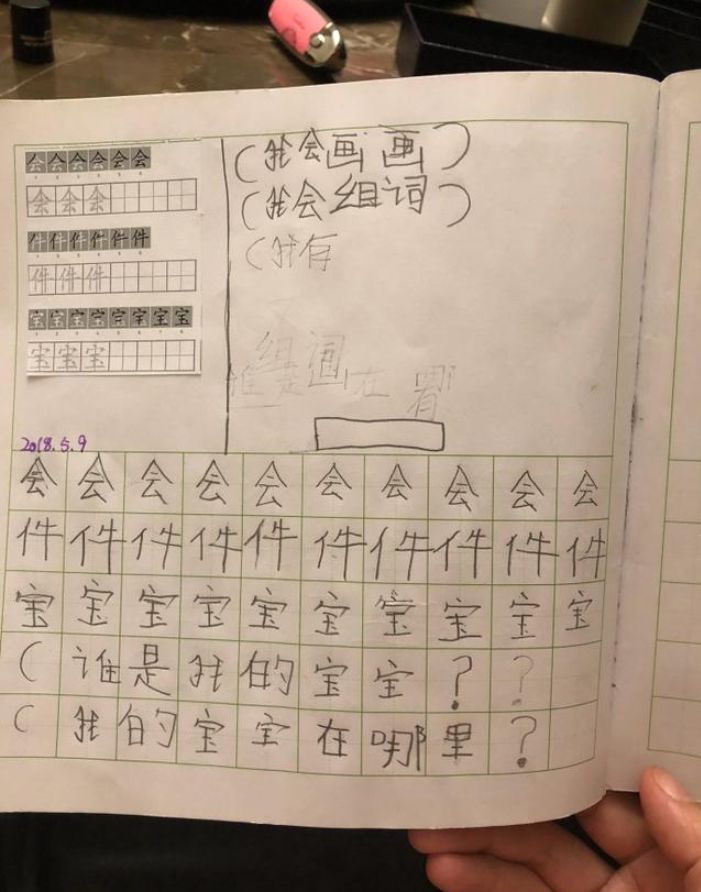 会会会会会会
会会会
件件件件件件
件件件
宝宝宝宝宝宝宝宝
宝宝宝
2018.5.9
(我会画画)
(我会组词)
(我有
组词
谁是 在 哪
会会会会会会会会会会
件件件件件件件件件件
宝宝宝宝宝宝宝宝宝宝
(谁是我的宝宝??
(我的宝宝在哪里?